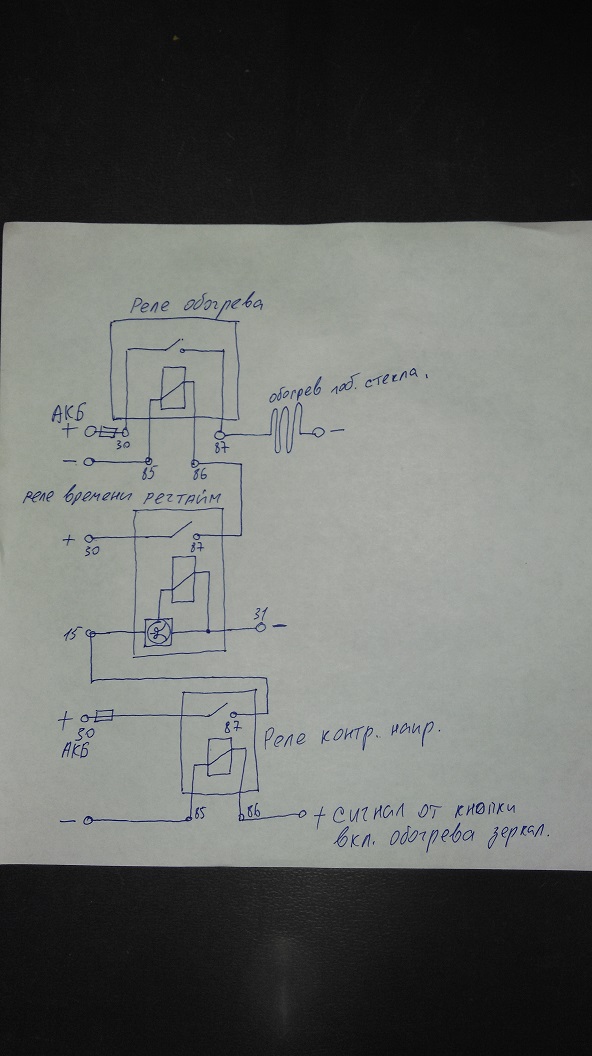 Реле обогрева
обогрев лоб. стекла.
АКБ
+
30
87
−
−
85
86
реле времени регтайм
+
30
87
15
31
−
+
30
87
АКБ
Реле контр. напр.
−
85
86
+ сигнал от кнопки
вкл. обогрева зеркал.